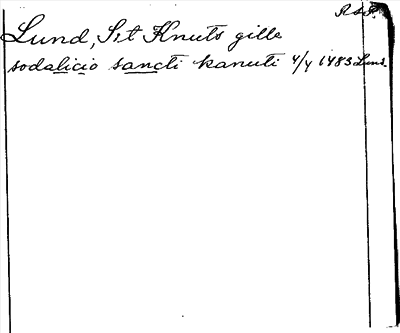 Lund, S:t Knuts gille
sodalicio sancti kanuti 4/4 1483